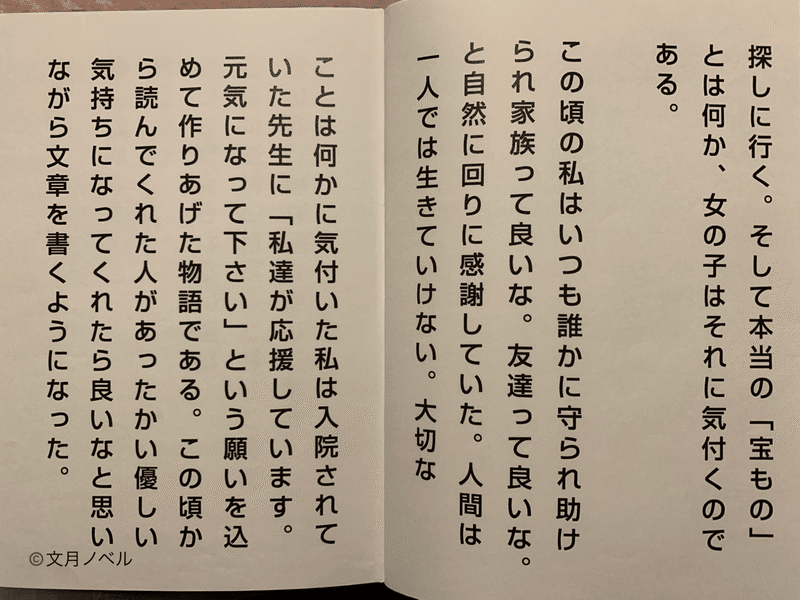 探しに行く。そして本当の「宝もの」
とは何か、女の子はそれに気付くので
ある。
この頃の私はいつも誰かに守られ助け
られ家族って良いな。友達って良いな。
と自然に回りに感謝していた。人間は
一人では生きていけない。大切な
ことは何かに気付いた私は入院されて
いた先生に「私達が応援しています。
元気になって下さい」という願いを込
めて作りあげた物語である。この頃か
ら読んでくれた人があったかい優しい
気持ちになってくれたら良いなと思い
ながら文章を書くようになった。
©文月ノベル